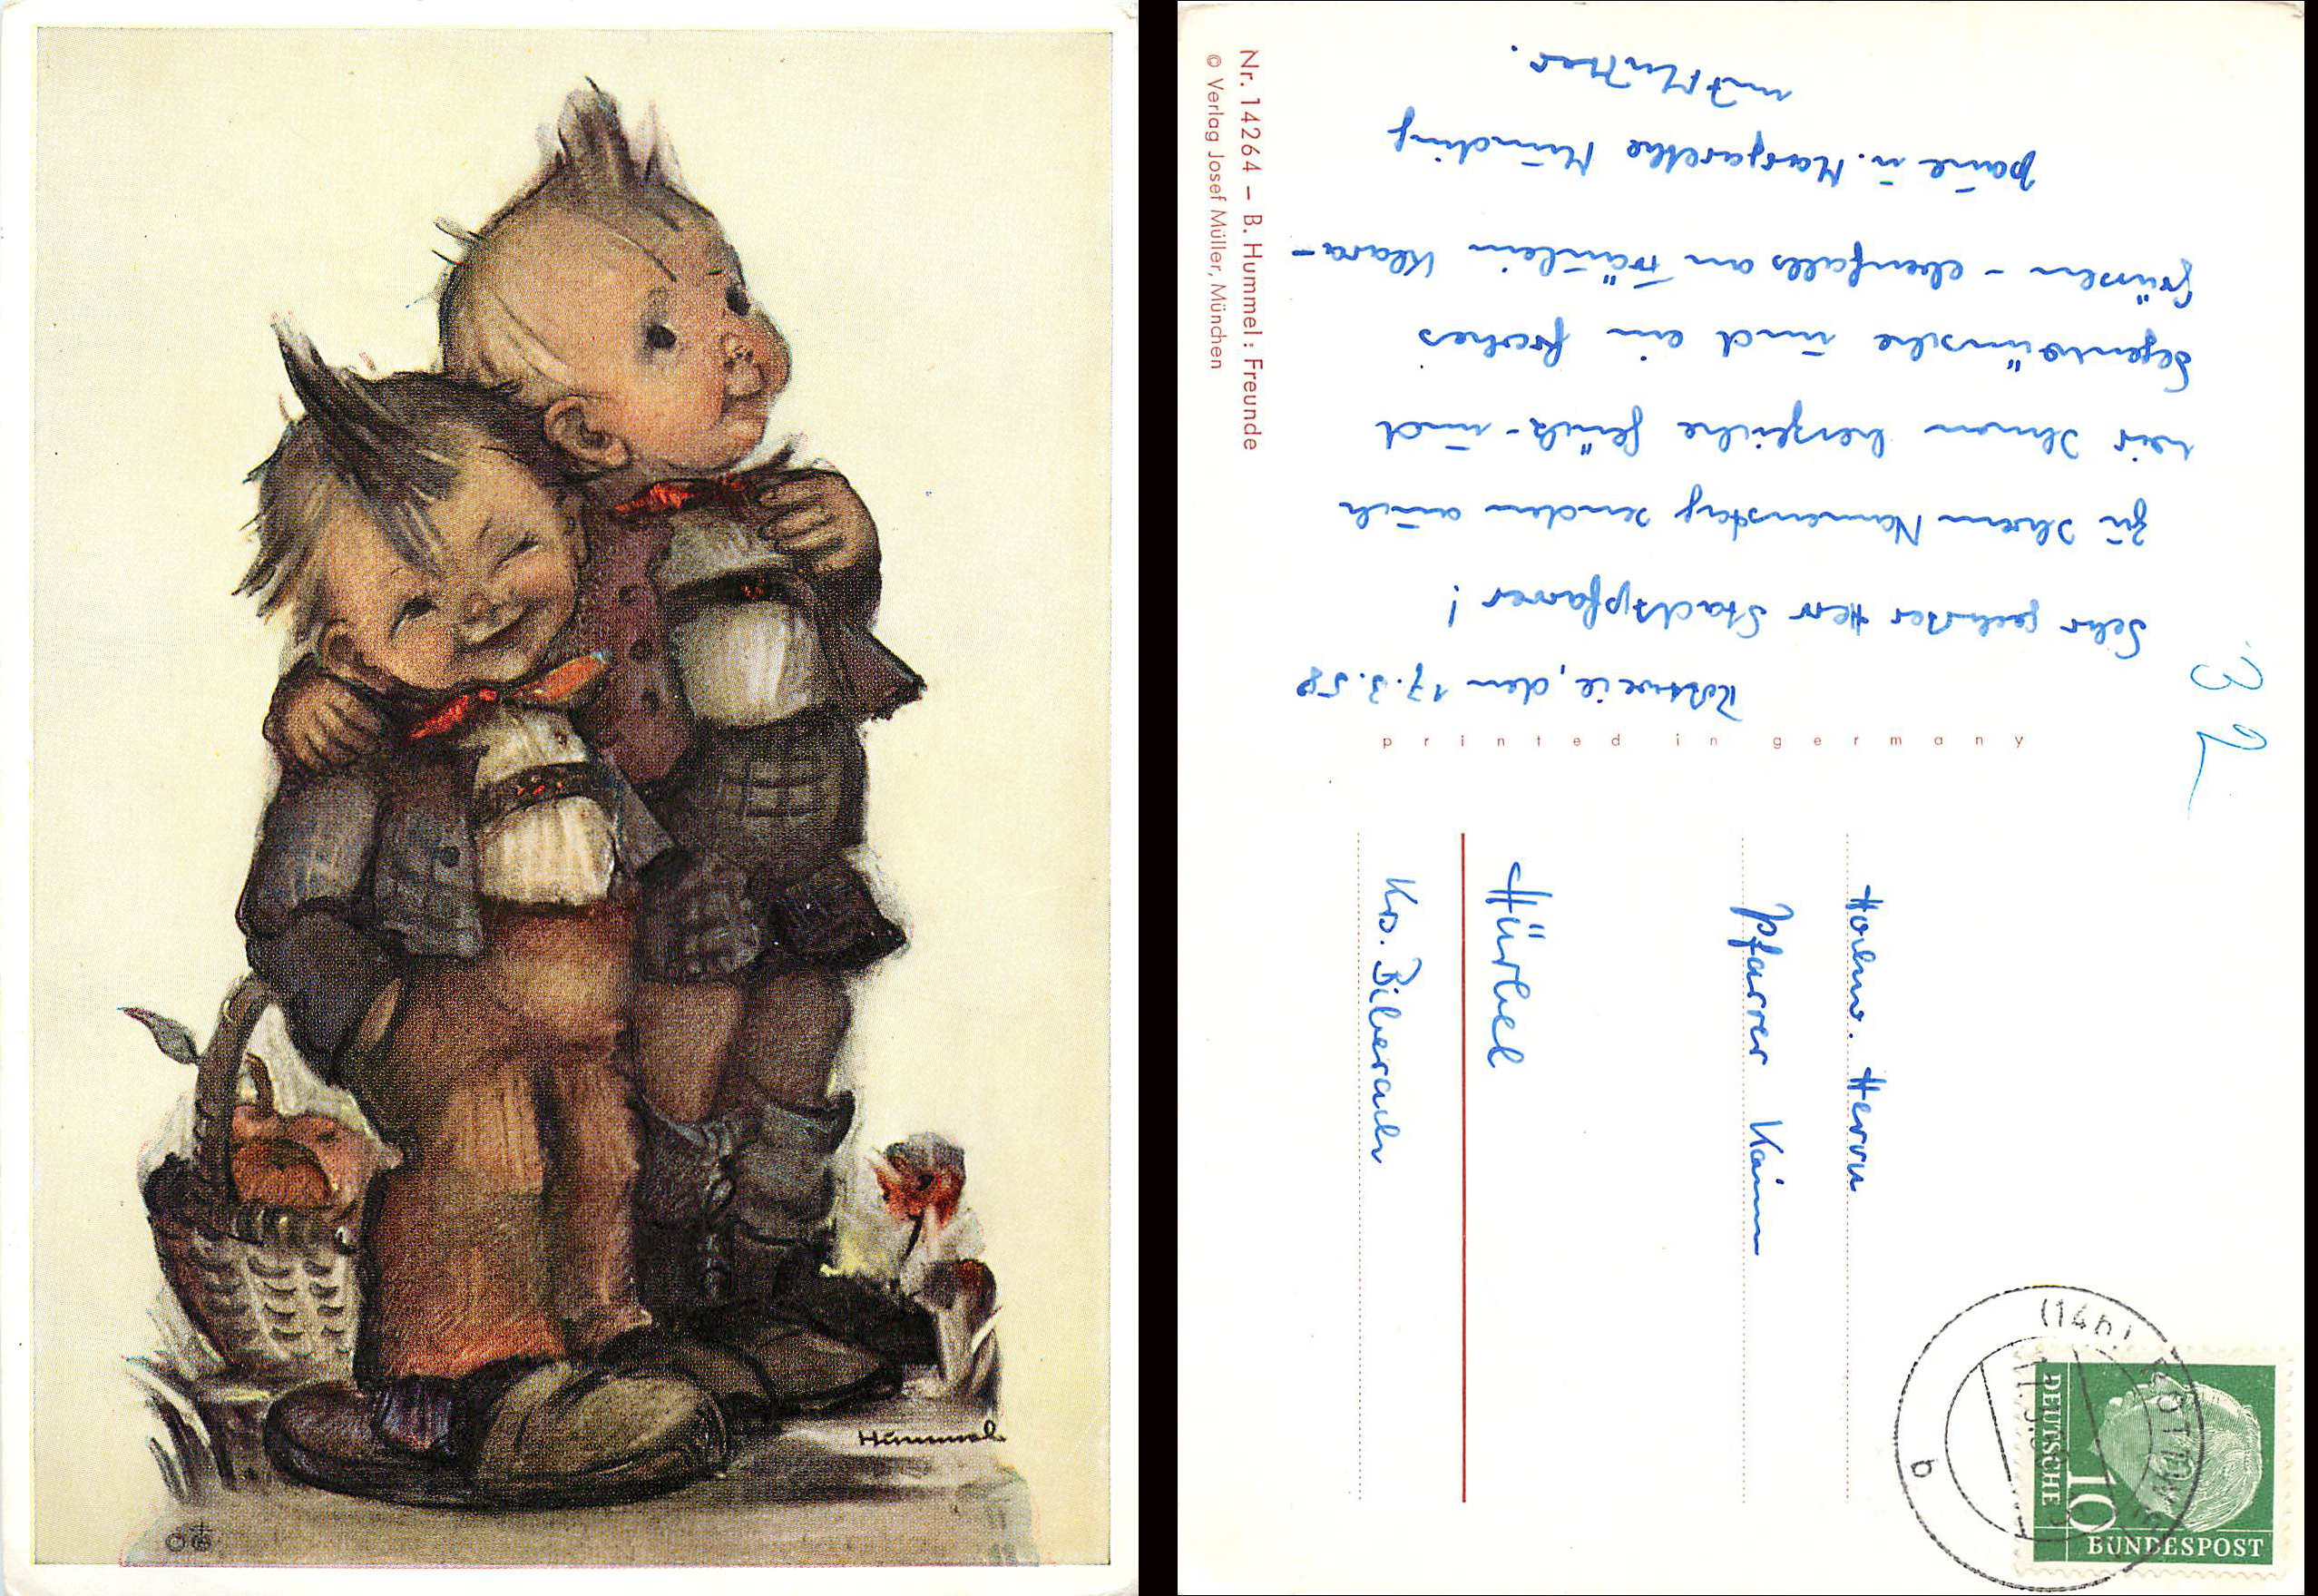 Hummel
Nr. 14264 – B. Hummel: Freunde
© Verlag Josef Müller, München
den 17.3.58
Sehr geehrter Herr Stadtpfarrer!
Zu Ihrem Namenstag senden auch
wir Ihnen herzliche Glück- und
Segenswünsche und ein frohes
Grüssen - ebenfalls an Fräulein Klara-
Paul u. Margarethe Münding
mit Mutter.
printed in germany
32
Hochw. Herrn
Pfarrer Kaim
Hürbel
Krs. Biberach
(14b)
b
DEUTSCHE
10
BUNDESPOST